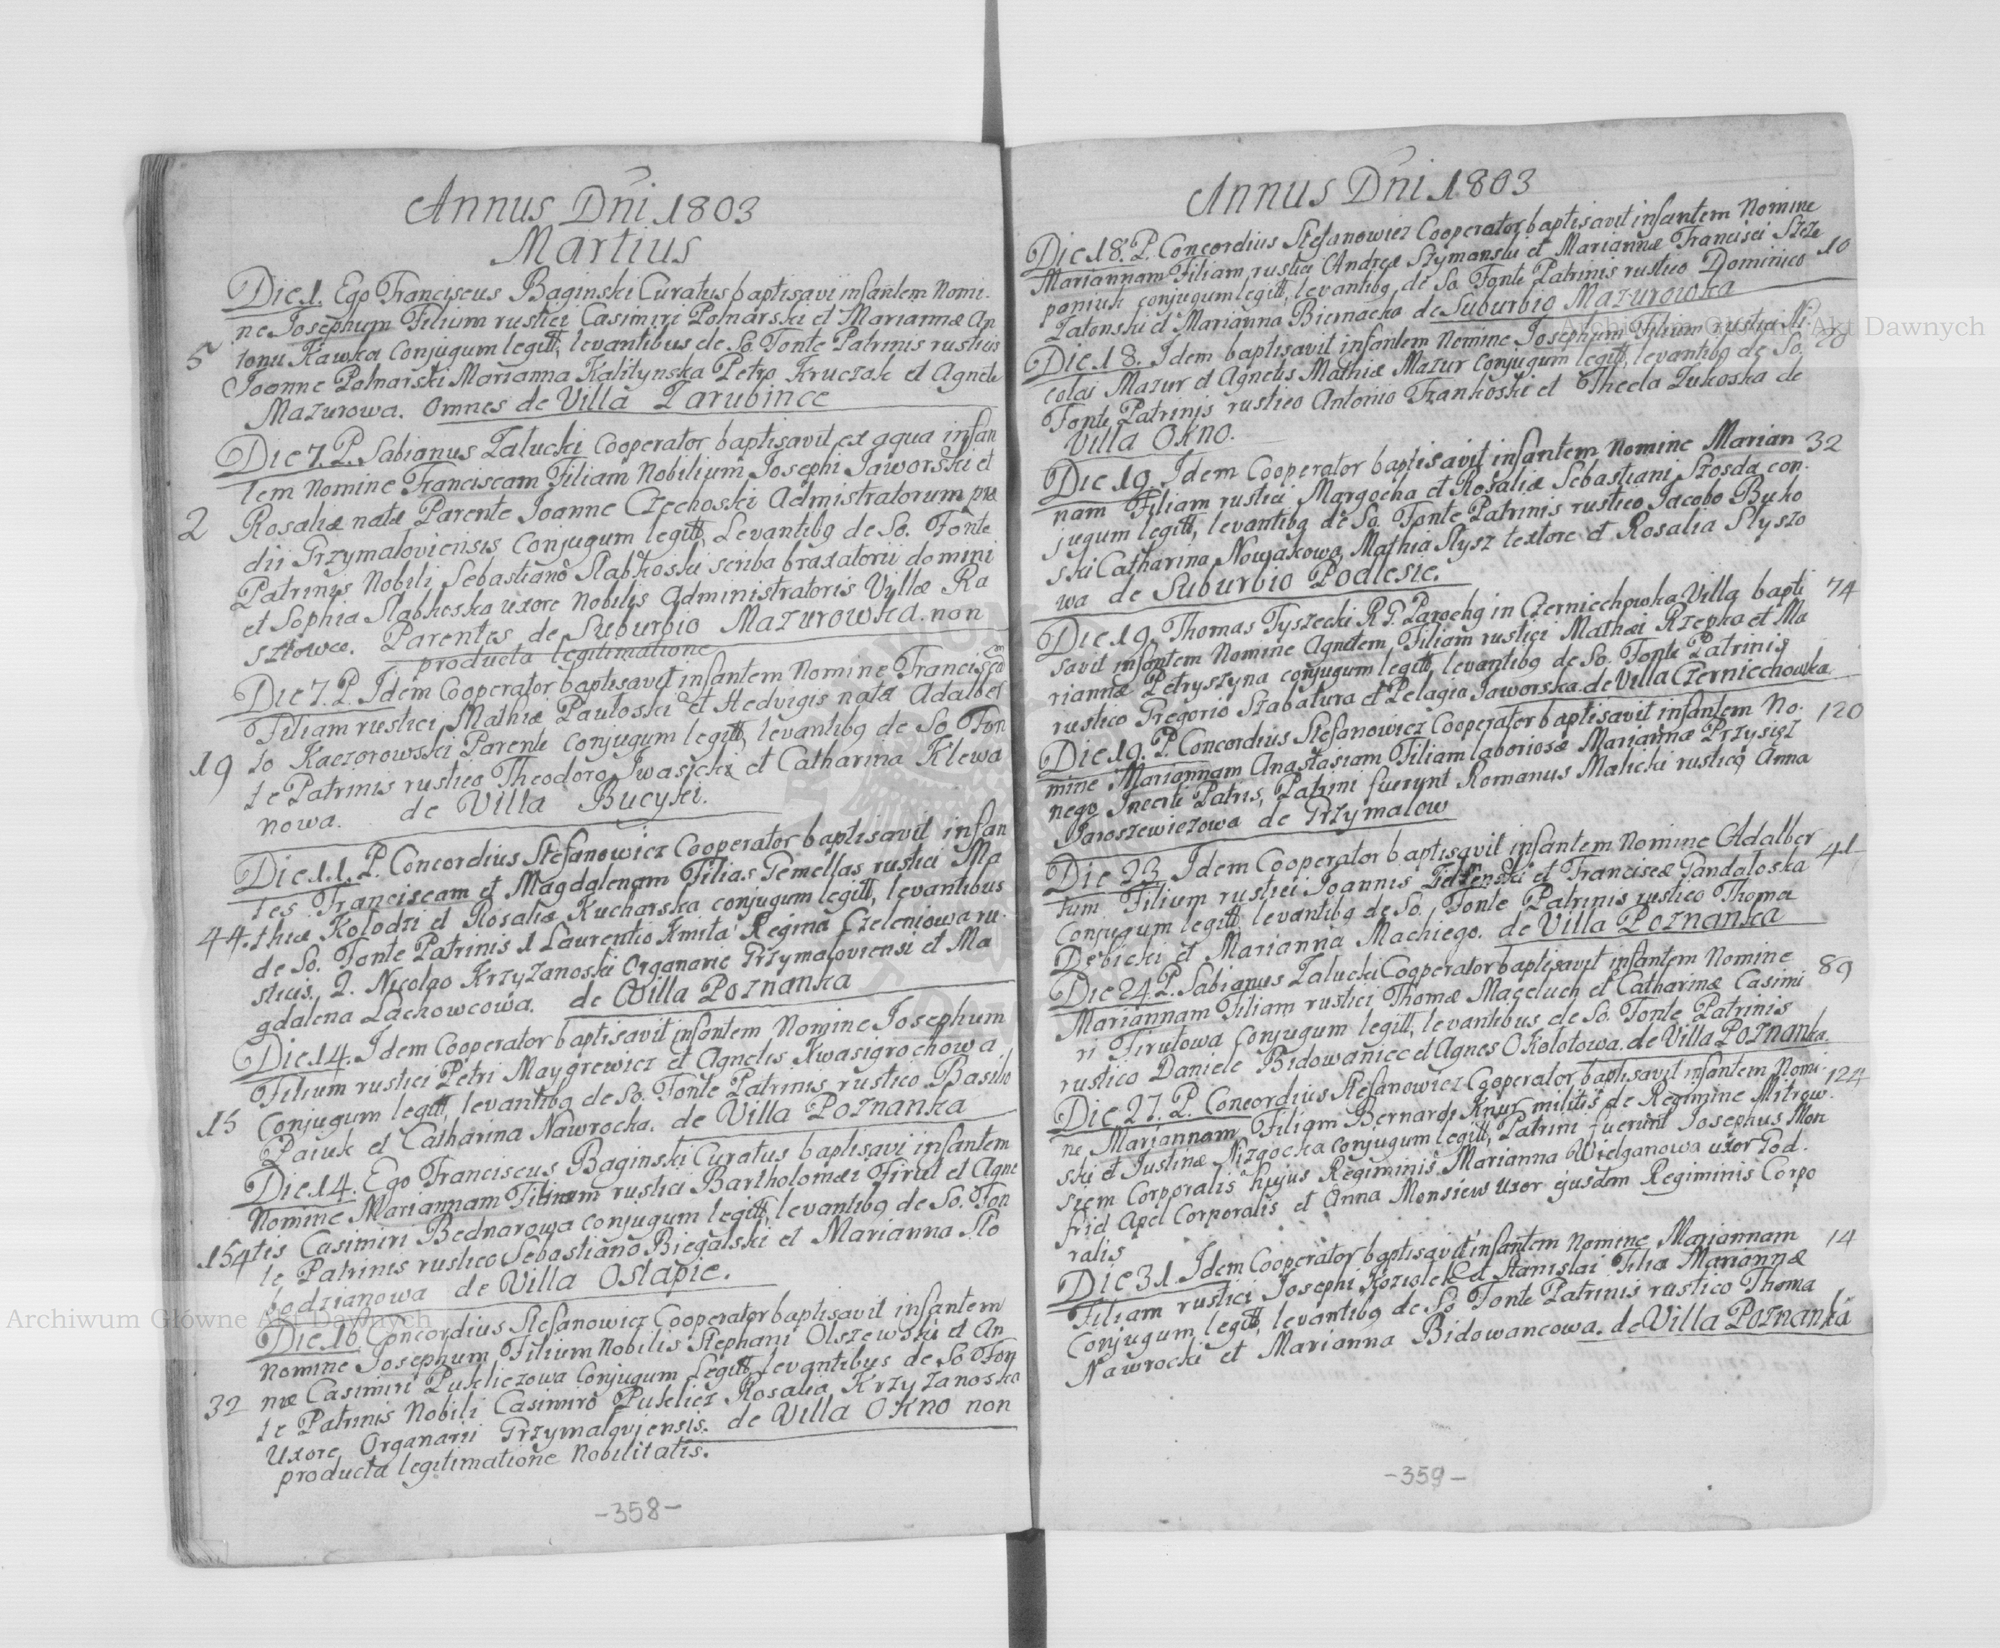 Annus Dni 1803
Martius
Die 1. Ego Franciscus Baginski Curatus baptisavi infantem Nomi-
ne Josephum Filium rustici Casimiri Polnarski et Mariannæ An
tonii Kawka Conjugum legitt, levantibus de So. Fonte Patrinis rusticis
5
Joanne Polnarski Marianna Kalitynska Petro Kruczak et Agnete
Mazurowa. Omnes de Villa Zarubince
Die 7. P. Sabianus Zalucki Cooperator baptisavit ex aqua infan
tem Nomine Franciscam Filiam Nobilium Josephi Jaworski et
Rosaliæ natæ Parente Joanne Czechoski Admistratorum præ
2
dii Grzymaloviensis Conjugum legitt, Levantibg de So. Fonte
Patrinis Nobili Sebastiano Slabkoski scriba braxatorii domini
et Sophia Slabkoska uxore Nobilis Administratoris Vyllæ Ra
sztowce. Parentes de Suburbio Mazurowka non
producta legitimatione
Die 7. P. Idem Cooperator baptisavit infantem Nomine Franciscam
Filiam rustici Mathiæ Pauloski et Hedvigis natæ Adalber
to Kaczorowski Parente Conjugum legitt, levantibg de So. Fon
19
te Patrinis rustico Theodoro Iwasicki et Catharina Klewa
nowa. de Villa Bucyki.
Die 11. P. Concordius Stefanowicz Cooperator baptisavit infan
tes Franciscam et Magdalenam Filias Gemellas rustici Ma
thiæ Kolodzi et Rosaliæ Kucharska conjugum legitt, levantibus
44.
de So. Fonte Patrinis 1 Laurentio Kmita Regina Czeleniowa ru-
sticis. 2. Nicolao Krzyzanoski Organario Grzymaloviensi et Ma
gdalena Lachowcowa. de Willa Poznanka
Die 14. Idem Cooperator baptisavit infantem Nomine Josephum
Filium rustici Petri Maygrewicz et Agnetis Kwasigrochowa
Conjugum legitt, levantibg de So. Fonte Patrinis rustico Basilio
15
Paiuk et Catharina Nawrocka. de Villa Poznanka
Die 14. Ego Franciscus Baginski Curatus baptisavi infantem
Nomine Mariannam Filiam rustici Bartholomæi Firut et Agne
tis Casimiri Bednarowa conjugum legitt, levantibg de So. Fon
154
te Patrinis rustico Sebastiano Biegalski et Marianna Slo
bodzianowa de Villa Ostapie.
Die 16 Concordius Stefanowicz Cooperator baptisavit infantem
Nomine Josephum Filium Nobilis Stephani Olszewski et An
næ Casimiri Pukliczowa Conjugum Legitt levantibus de So. Fon
te Patrinis Nobili Casimiro Puklicz Rosalia Krzyzanoska
32
Uxore Organarii Grzymaloviensis. de Villa Okno non
producta legitimatione Nobilitatis.
-358-
Annus Dni 1803
Die 18. P. Concordius Stefanowicz Cooperator baptisavit infantem Nomine
Mariannam Filiam rustici Andreæ Szymanski et Mariannæ Francisci Szcze
10
poniuk conjugum legitt, levantibg de So. Fonte Patrinis rustico Dominico
Zatonski et Marianna Biernacka de Suburbio Mazurowka
Die 18. Idem baptisavit infantem Nomine Josephum Filium rustici Ni
20
colai Mazur et Agnetis Mathiæ Mazur Conjugum legitt, levantibg de So.
Fonte Patrinis rustico Antonio Frankoski et Thecla Zukoska de
Villa Okno.
Die 19. Idem Cooperator baptisavit infantem Nomine Marian
32
nam Filiam rustici Margocha et Rosaliæ Sebastiani Szosda con-
jugum legitt, levantibg de So. Fonte Patrinis rustico Jacobo Buko
ski Catharina Nowakowa, Mathia Slysz textore et Rosalia Slyszo
wa de Suburbio Podlesie.
Die 19. Thomas Tyszecki R. G. Parochg in Czerniechowka Villa bapti
74
savit infantem Nomine Agnetem Filiam rustici Mathæi Rzepka et Ma
riannæ Petryszyna conjugum legitt, levantibg de So. Fonte Patrinis
rustico Gregorio Szabatura et Pelagia Jaworska de Villa Czerniechowka
Die 19. P. Concordius Stefanowicz Cooperator baptisavit infantem No-
120
mine Mariannam Anastasiam Filiam laboriosæ Mariannæ Przysiez
nego Incerti Patris, Patrini fuerunt Romanus Malicki rusticg Anna
Jaroszewiczowa de Grzymalow
Die 23 Idem Cooperator baptisavit infantem Nomine Adalber
41
tum Filium rustici Joannis Zielenski et Franciscæ Gandaloska
Conjugum legitt, levantibg de So. Fonte Patrinis rustico Thoma
Debicki et Marianna Machiego. de Villa Poznanka
Die 24 P. Sabianus Zalucki Cooperator baptisavit infantem Nomine
89
Mariannam Filiam rustici Thomæ Maceluch et Catharinæ Casimi
ri Firutowa Conjugum legitt, levantibus de So. Fonte Patrinis
rustico Daniele Bidowaniec et Agnes Okolotowa. de Villa Poznanka.
Die 27. P. Concordius Stefanowicz Cooperator baptisavit infantem Nomi-
124
ne Mariannam Filiam Bernardi Knur militis de Regimine Mitrow-
ski et Justinæ Nizgocka conjugum legitt, Patrini fuerunt Josephus Mon
siem Corporalis hujus Regiminis Marianna Wielganowa uxor God-
frid Apel Corporalis et Anna Monsiew uxor ejusdem Regiminis Corpo
ralis
Die 31. Idem Cooperator baptisavit infantem Nomine Mariannam
14
Filiam rustici Josephi Koziolek et Stanislai Filia Mariannæ
Conjugum legitt, levantibg de So Fonte Patrinis rustico Thoma
Nawrocki et Marianna Bidowancowa. de Villa Poznanka
-359-
Archiwum Główne Akt Dawnych
Archiwum Główne Akt Dawnych